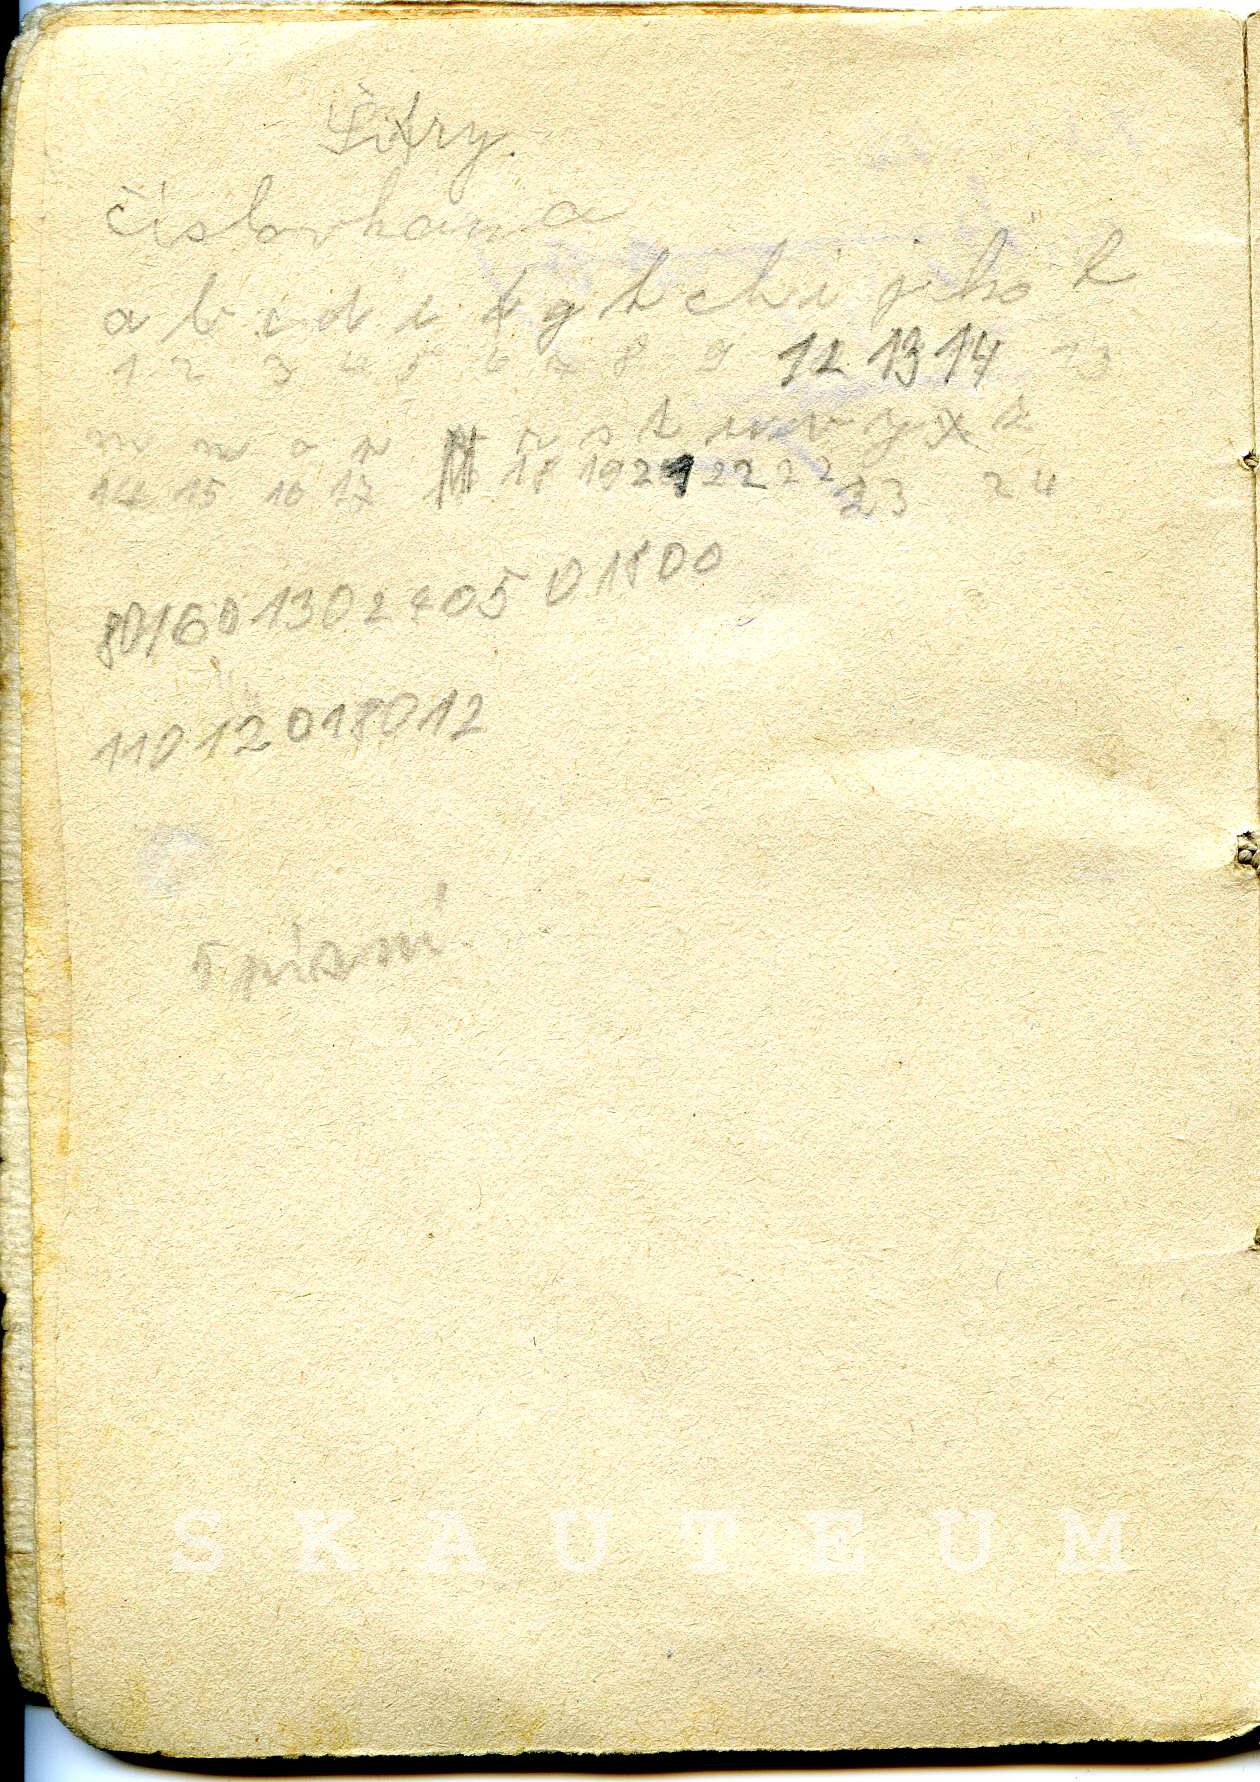 Šifry.
číslovkama
a b c d e f g h ch i j k l
1 2 3 4 5 6 7 8 9 12 13 14 13
m n o p r s t u v y x z
14 15 16 17 18 19 21 22 22 23 24
80160130240501800
11012018012
písní
SKAUTEUM